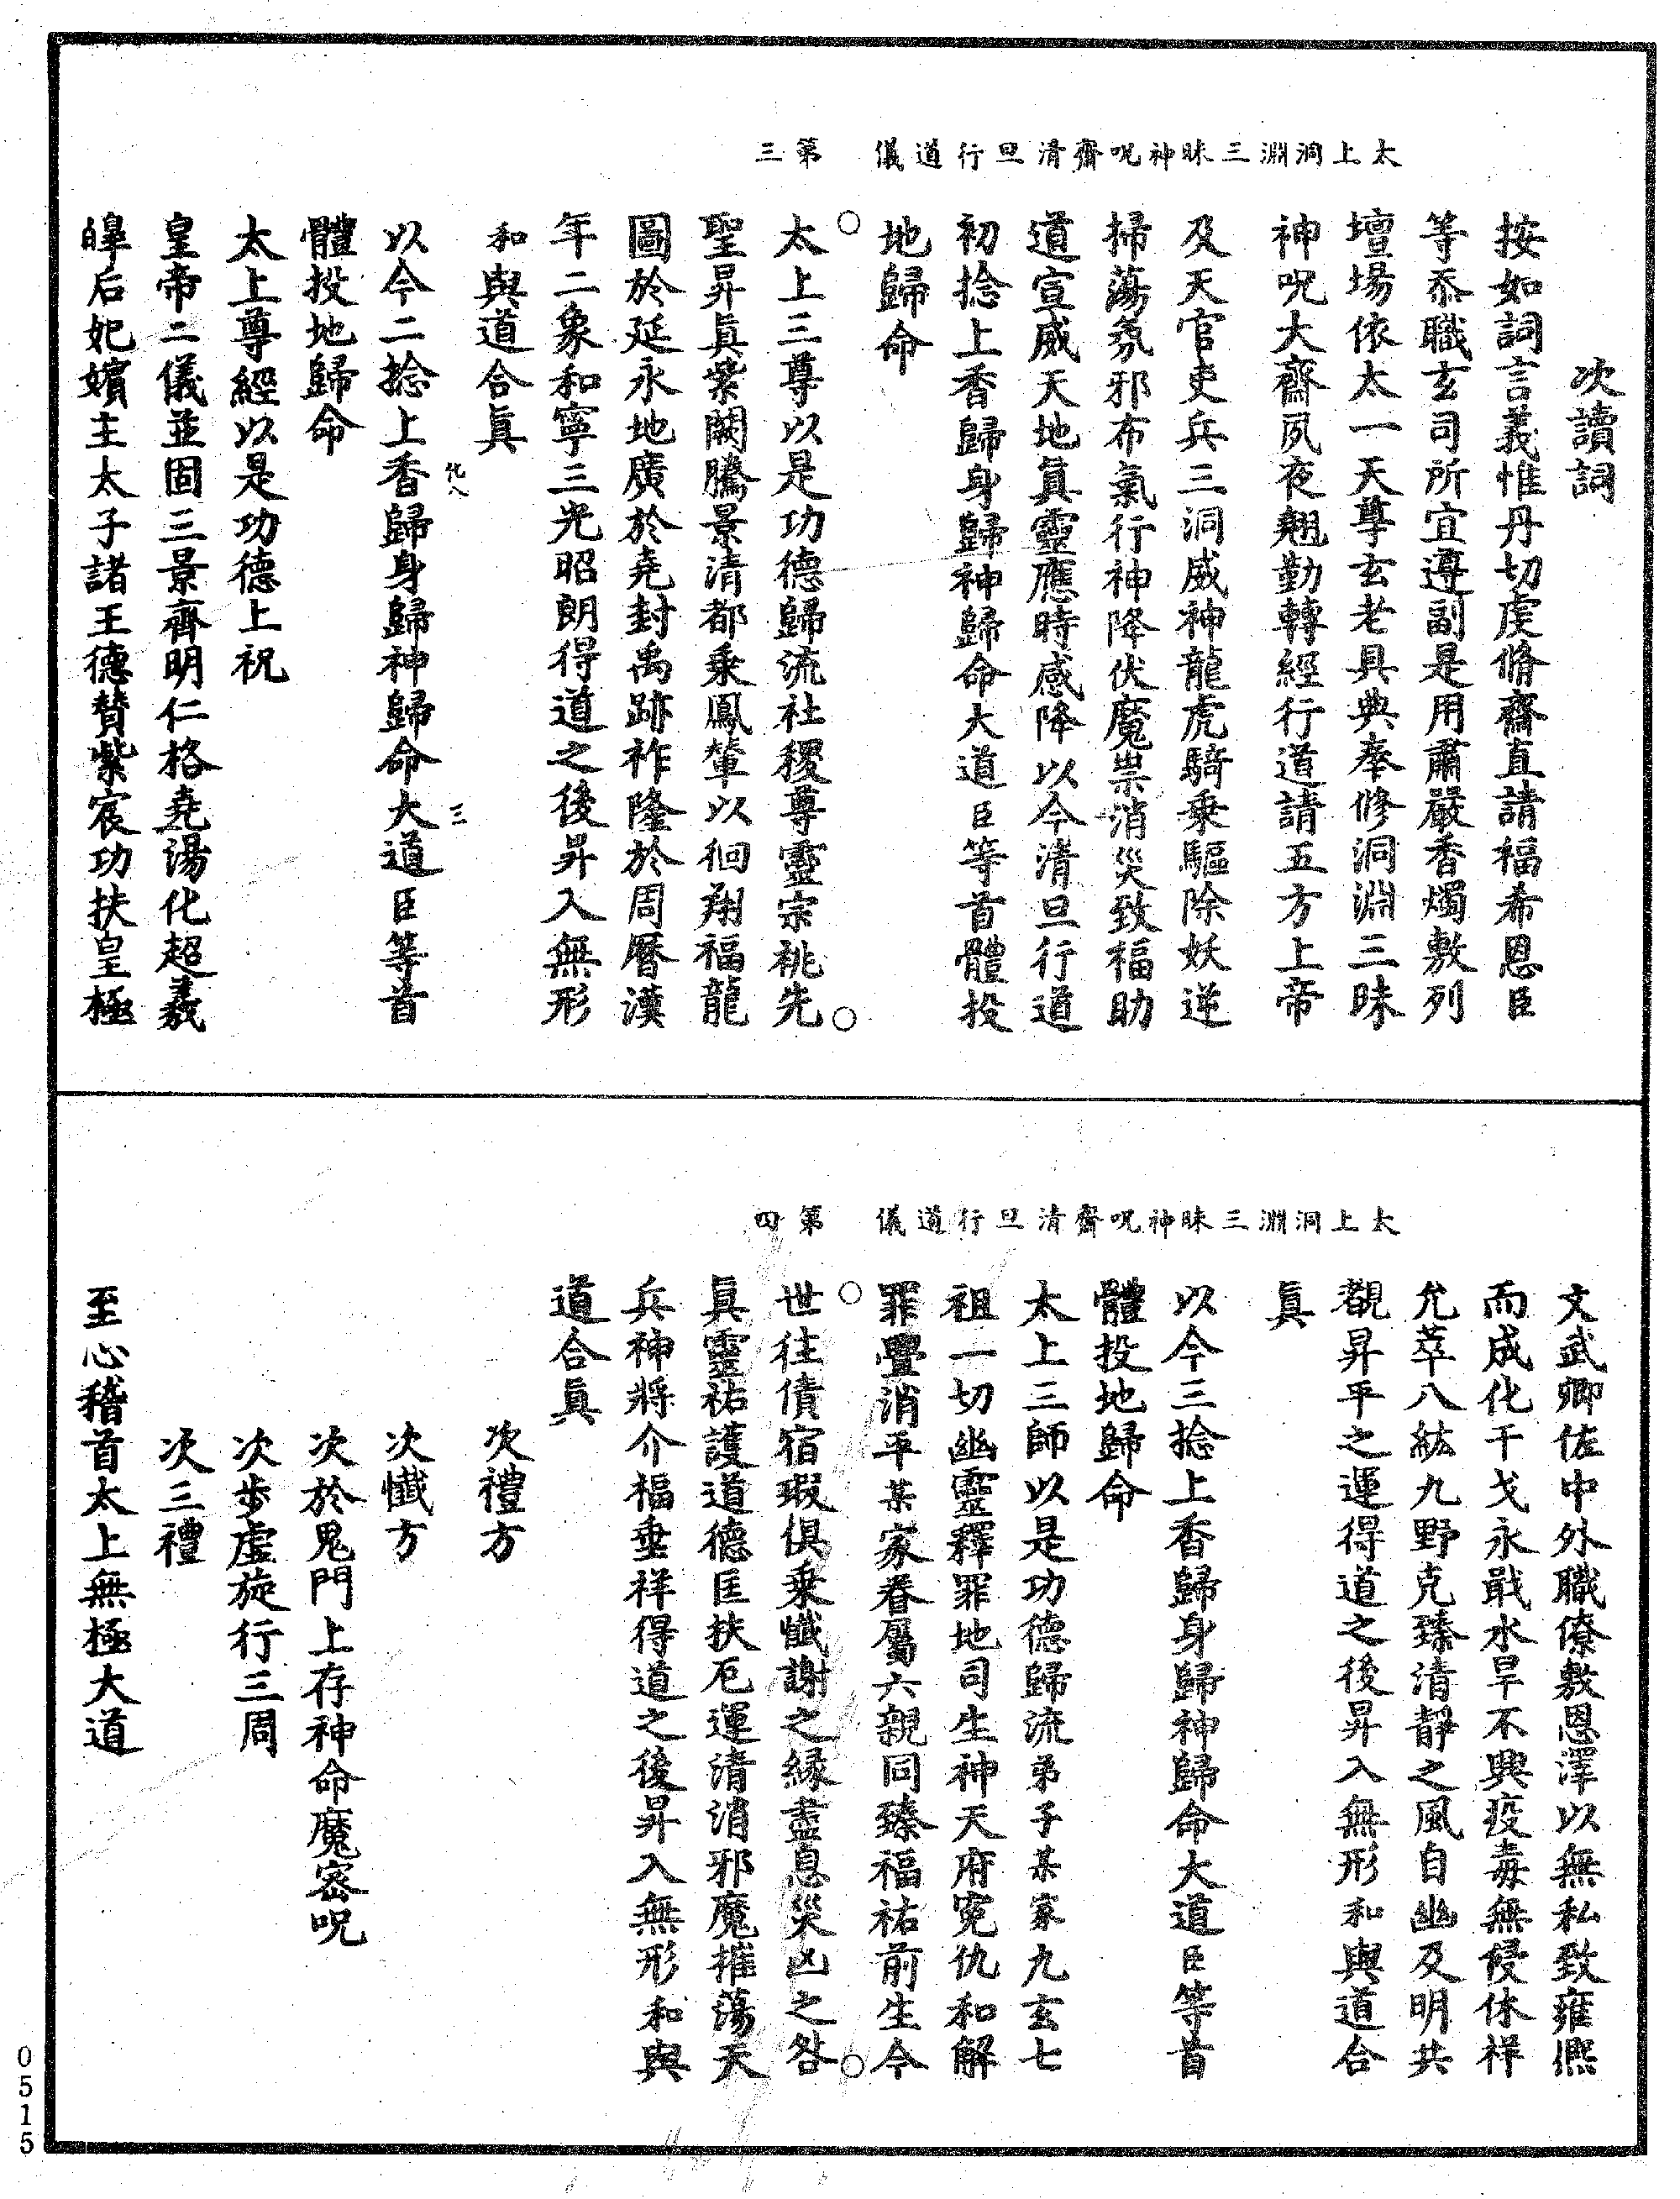 太上洞淵三昧神呪齋清旦行道儀　第三
次讀詞
按如詞言義惟丹切虔脩齋直請福希恩臣
等忝職玄司所宜遵副是用肅嚴香燭敷列
壇場依太一天尊玄老具典奉修洞淵三昧
神呪大齋夙夜翹勤轉經行道請五方上帝
及天官吏兵三洞威神龍虎騎乗驅除妖逆
掃蕩氛邪布氣行神降伏魔祟消災致福助
道宣威天地眞靈應時感降以今清旦行道
初捻上香歸身歸神歸命大道臣等首體投
地歸命
太上三尊以是功德歸流社稷尊靈宗祧先
聖昇眞紫闕騰景清都乗鳳輦以徊翔福龍
圖於延永地廣於堯封禹跡祚隆於周曆漢
年二象和寧三光昭朗得道之後昇入無形
和與道合眞
化八　三
以今二捻上香歸身歸神歸命大道臣等首
體投地歸命
太上尊經以是功德上祝
皇帝二儀並固三景齊明仁格堯湯化超羲
皞后妃嬪主太子諸王德賛紫宸功扶皇極
太上洞淵三昧神呪齋清旦行道儀　第四
文武卿佐中外職僚敷恩澤以無私致雍熈
而成化干戈永戢水旱不興疫毒無侵休祥
允萃八紘九野克臻清靜之風自幽及明共
覩昇平之運得道之後昇入無形和與道合
眞
以今三捻上香歸身歸神歸命大道臣等首
體投地歸命
太上三師以是功德歸流弟子某家九玄七
祖一切幽靈釋罪地司生神天府寃仇和解
罪舋消平某家眷屬六親同臻福祐前生今
世往債宿瑕俱乗懴謝之縁盡息災凶之咎
眞靈祐護道德匡扶厄運清消邪魔摧蕩天
兵神將介福垂祥得道之後昇入無形和與
道合眞
次禮方
次懴方
次於鬼門上存神命魔密呪
次步虛旋行三周
次三禮
至心稽首太上無極大道
0515